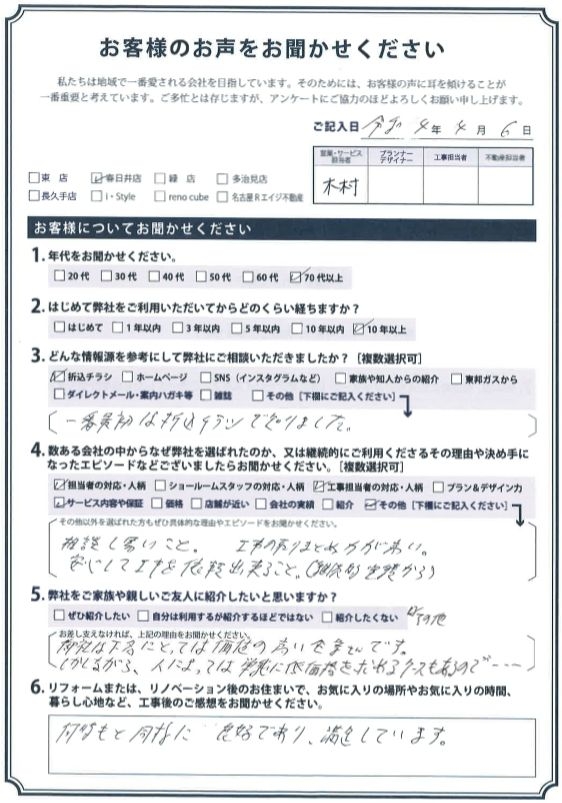 お客様のお声をお聞かせください
私たちは地域で一番愛される会社を目指しています。そのためには、お客様の声に耳を傾けることが
一番重要と考えています。ご多忙とは存じますが、アンケートにご協力のほどよろしくお願い申し上げます。
ご記入日 令和 4 年 4 月 6 日
営業・サービス担当者 プランナーデザイナー 工事担当者 不動産担当者
木村
□東 店 ☑春日井店 □緑 店 □多治見店
□長久手店 □i・Style □reno cube □名古屋Rエイジ不動産
お客様についてお聞かせください
1. 年代をお聞かせください。
□20代 □30代 □40代 □50代 □60代 ☑70代以上
2. はじめて弊社をご利用いただいてからどのくらい経ちますか？
□はじめて □1年以内 □3年以内 □5年以内 □10年以内 ☑10年以上
3. どんな情報源を参考にして弊社にご相談いただきましたか？［複数選択可］
☑折込チラシ □ホームページ □SNS（インスタグラムなど） □家族や知人からの紹介 □東邦ガスから
□ダイレクトメール・案内ハガキ等 □雑誌 □その他［下欄にご記入ください］
一番最初は折込チラシで知りました。
4. 数ある会社の中からなぜ弊社を選ばれたのか、又は継続的にご利用くださるその理由や決め手に
なったエピソードなどございましたらお聞かせください。［複数選択可］
☑担当者の対応・人柄 □ショールームスタッフの対応・人柄 ☑工事担当者の対応・人柄 □プラン&デザイン力
☑サービス内容や保証 □価格 □店舗が近い □会社の実績 □紹介 ☑その他［下欄にご記入ください］
その他以外を選ばれた方もぜひ具体的な理由やエピソードをお聞かせください。
相談し易いこと。 工事の取りまとめ方が良い。
安心して工事を依頼出来ること。
5. 弊社をご家族や親しいご友人に紹介したいと思いますか？
□ぜひ紹介したい □自分は利用するが紹介するほどではない □紹介したくない ☑その他
お差し支えなければ、上記の理由をお聞かせください。
にとっては価値の高い
しかしながら、人によっては 低価格を求めるケースもあるので----
6. リフォームまたは、リノベーション後のお住まいで、お気に入りの場所やお気に入りの時間、
暮らし心地など、工事後のご感想をお聞かせください。
何時もと同様に 良好であり、満足しています。